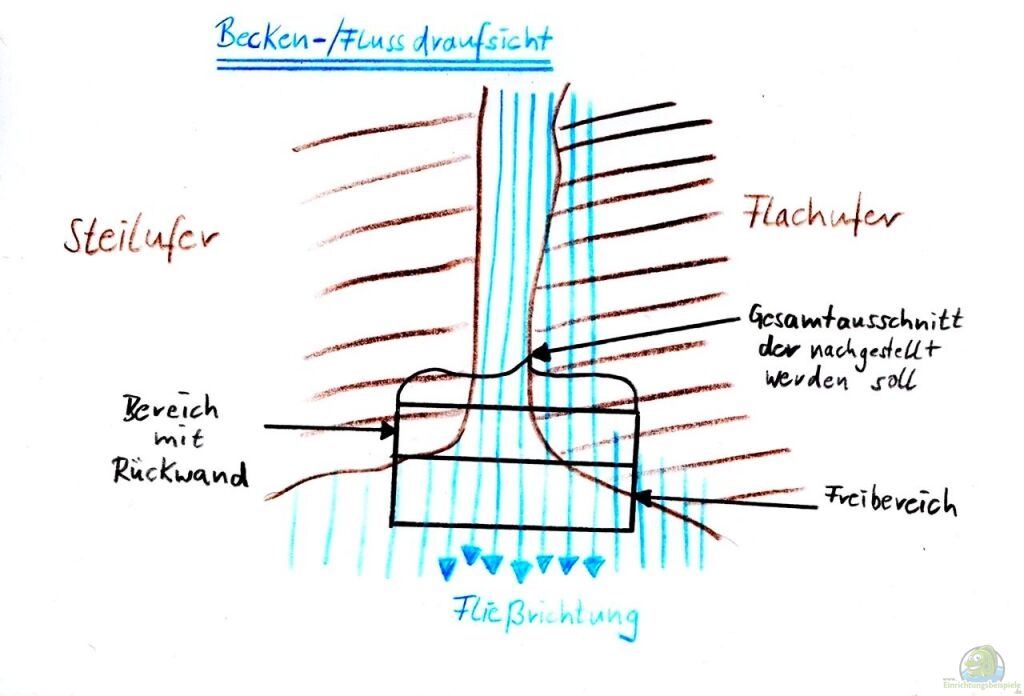 Becken-/Flussdraufsicht
Steilufer
Flachufer
Gesamtausschnitt
der nachgestellt
werden soll
Bereich
mit
Rückwand
Freibereich
Fließrichtung
www.
Einrichtungsbeispiele
.de